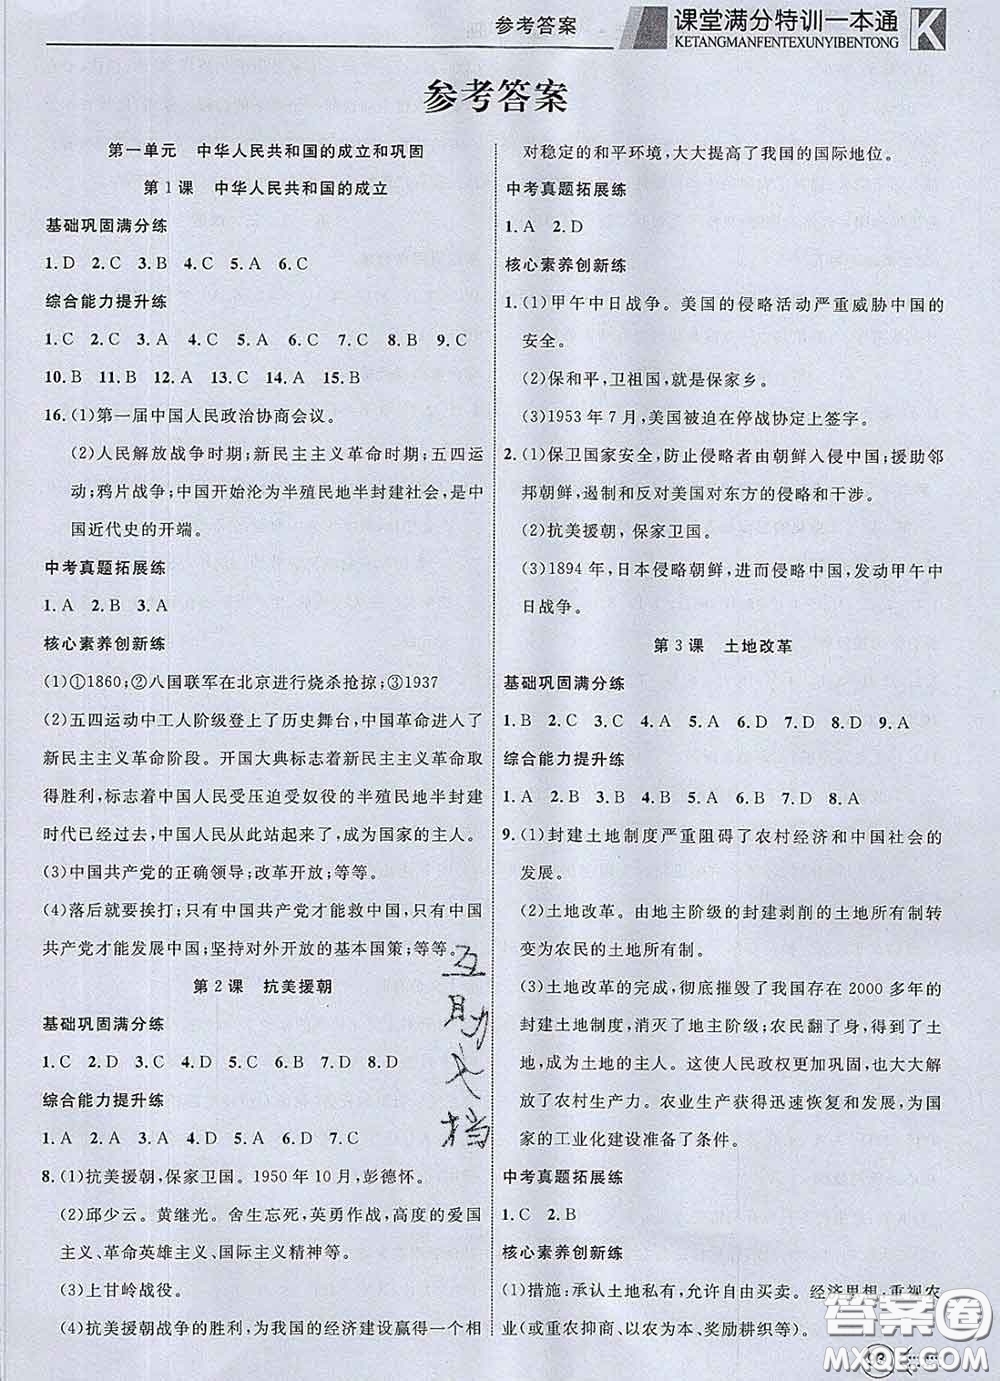 参考答案
课堂满分特训一本通
KETANGMANFENTEXUNYIBENTONG
K
参考答案
第一单元 中华人民共和国的成立和巩固
第1课 中华人民共和国的成立
基础巩固满分练
1. D 2. C 3. B 4. C 5. A 6. C
综合能力提升练
1. C 2. C 3. A 4. C 5. A 6. A 7. C 8. B 9. C
10. B 11. B 12. A 13. C 14. A 15. B
16. (1)第一届中国人民政治协商会议。
(2)人民解放战争时期;新民主主义革命时期;五四运
动;鸦片战争;中国开始沦为半殖民地半封建社会,是中
国近代史的开端。
中考真题拓展练
1. A 2. B 3. A
核心素养创新练
(1)①1860;②八国联军在北京进行烧杀抢掠;③1937
(2)五四运动中工人阶级登上了历史舞台,中国革命进入了
新民主主义革命阶段。开国大典标志着新民主主义革命取
得胜利,标志着中国人民受压迫受奴役的半殖民地半封建
时代已经过去,中国人民从此站起来了,成为国家的主人。
(3)中国共产党的正确领导;改革开放;等等。
(4)落后就要挨打;只有中国共产党才能救中国,只有中国
共产党才能发展中国;坚持对外开放的基本国策;等等。
第2课 抗美援朝
基础巩固满分练
1. C 2. D 3. C 4. D 5. C 6. A 7. B 8. D
综合能力提升练
1. A 2. A 3. A 4. D 5. D 6. D 7. C
8. (1)抗美援朝,保家卫国。1950年10月,彭德怀。
(2)邱少云。黄继光。舍生忘死,英勇作战,高度的爱国
主义、革命英雄主义、国际主义精神等。
(3)上甘岭战役。
(4)抗美援朝战争的胜利,为我国的经济建设赢得一个相
对稳定的和平环境,大大提高了我国的国际地位。
中考真题拓展练
1. A 2. D
核心素养创新练
1. (1)甲午中日战争。美国的侵略活动严重威胁中国的
安全。
(2)保和平,卫祖国,就是保家乡。
(3)1953年7月,美国被迫在停战协定上签字。
2. (1)保卫国家安全,防止侵略者由朝鲜入侵中国;援助邻
邦朝鲜,遏制和反对美国对东方的侵略和干涉。
(2)抗美援朝,保家卫国。
(3)1894年,日本侵略朝鲜,进而侵略中国,发动甲午中
日战争。
第3课 土地改革
基础巩固满分练
1. B 2. C 3. C 4. A 5. A 6. D 7. D 8. D 9. A
综合能力提升练
1. A 2. C 3. B 4. A 5. A 6. D 7. D 8. A
9. (1)封建土地制度严重阻碍了农村经济和中国社会的
发展。
(2)土地改革。由地主阶级的封建剥削的土地所有制转
变为农民的土地所有制。
(3)土地改革的完成,彻底摧毁了我国存在2000多年的
封建土地制度,消灭了地主阶级;农民翻了身,得到了土
地,成为土地的主人。这使人民政权更加巩固,也大大解
放了农村生产力。农业生产获得迅速恢复和发展,为国
家的工业化建设准备了条件。
中考真题拓展练
1. C 2. B
核心素养创新练
(1)措施:承认土地私有,允许自由买卖。经济思想:重视农
业(或重农抑商、以农为本、奖励耕织等)。
互助文档
答案圈
MXQE.COM